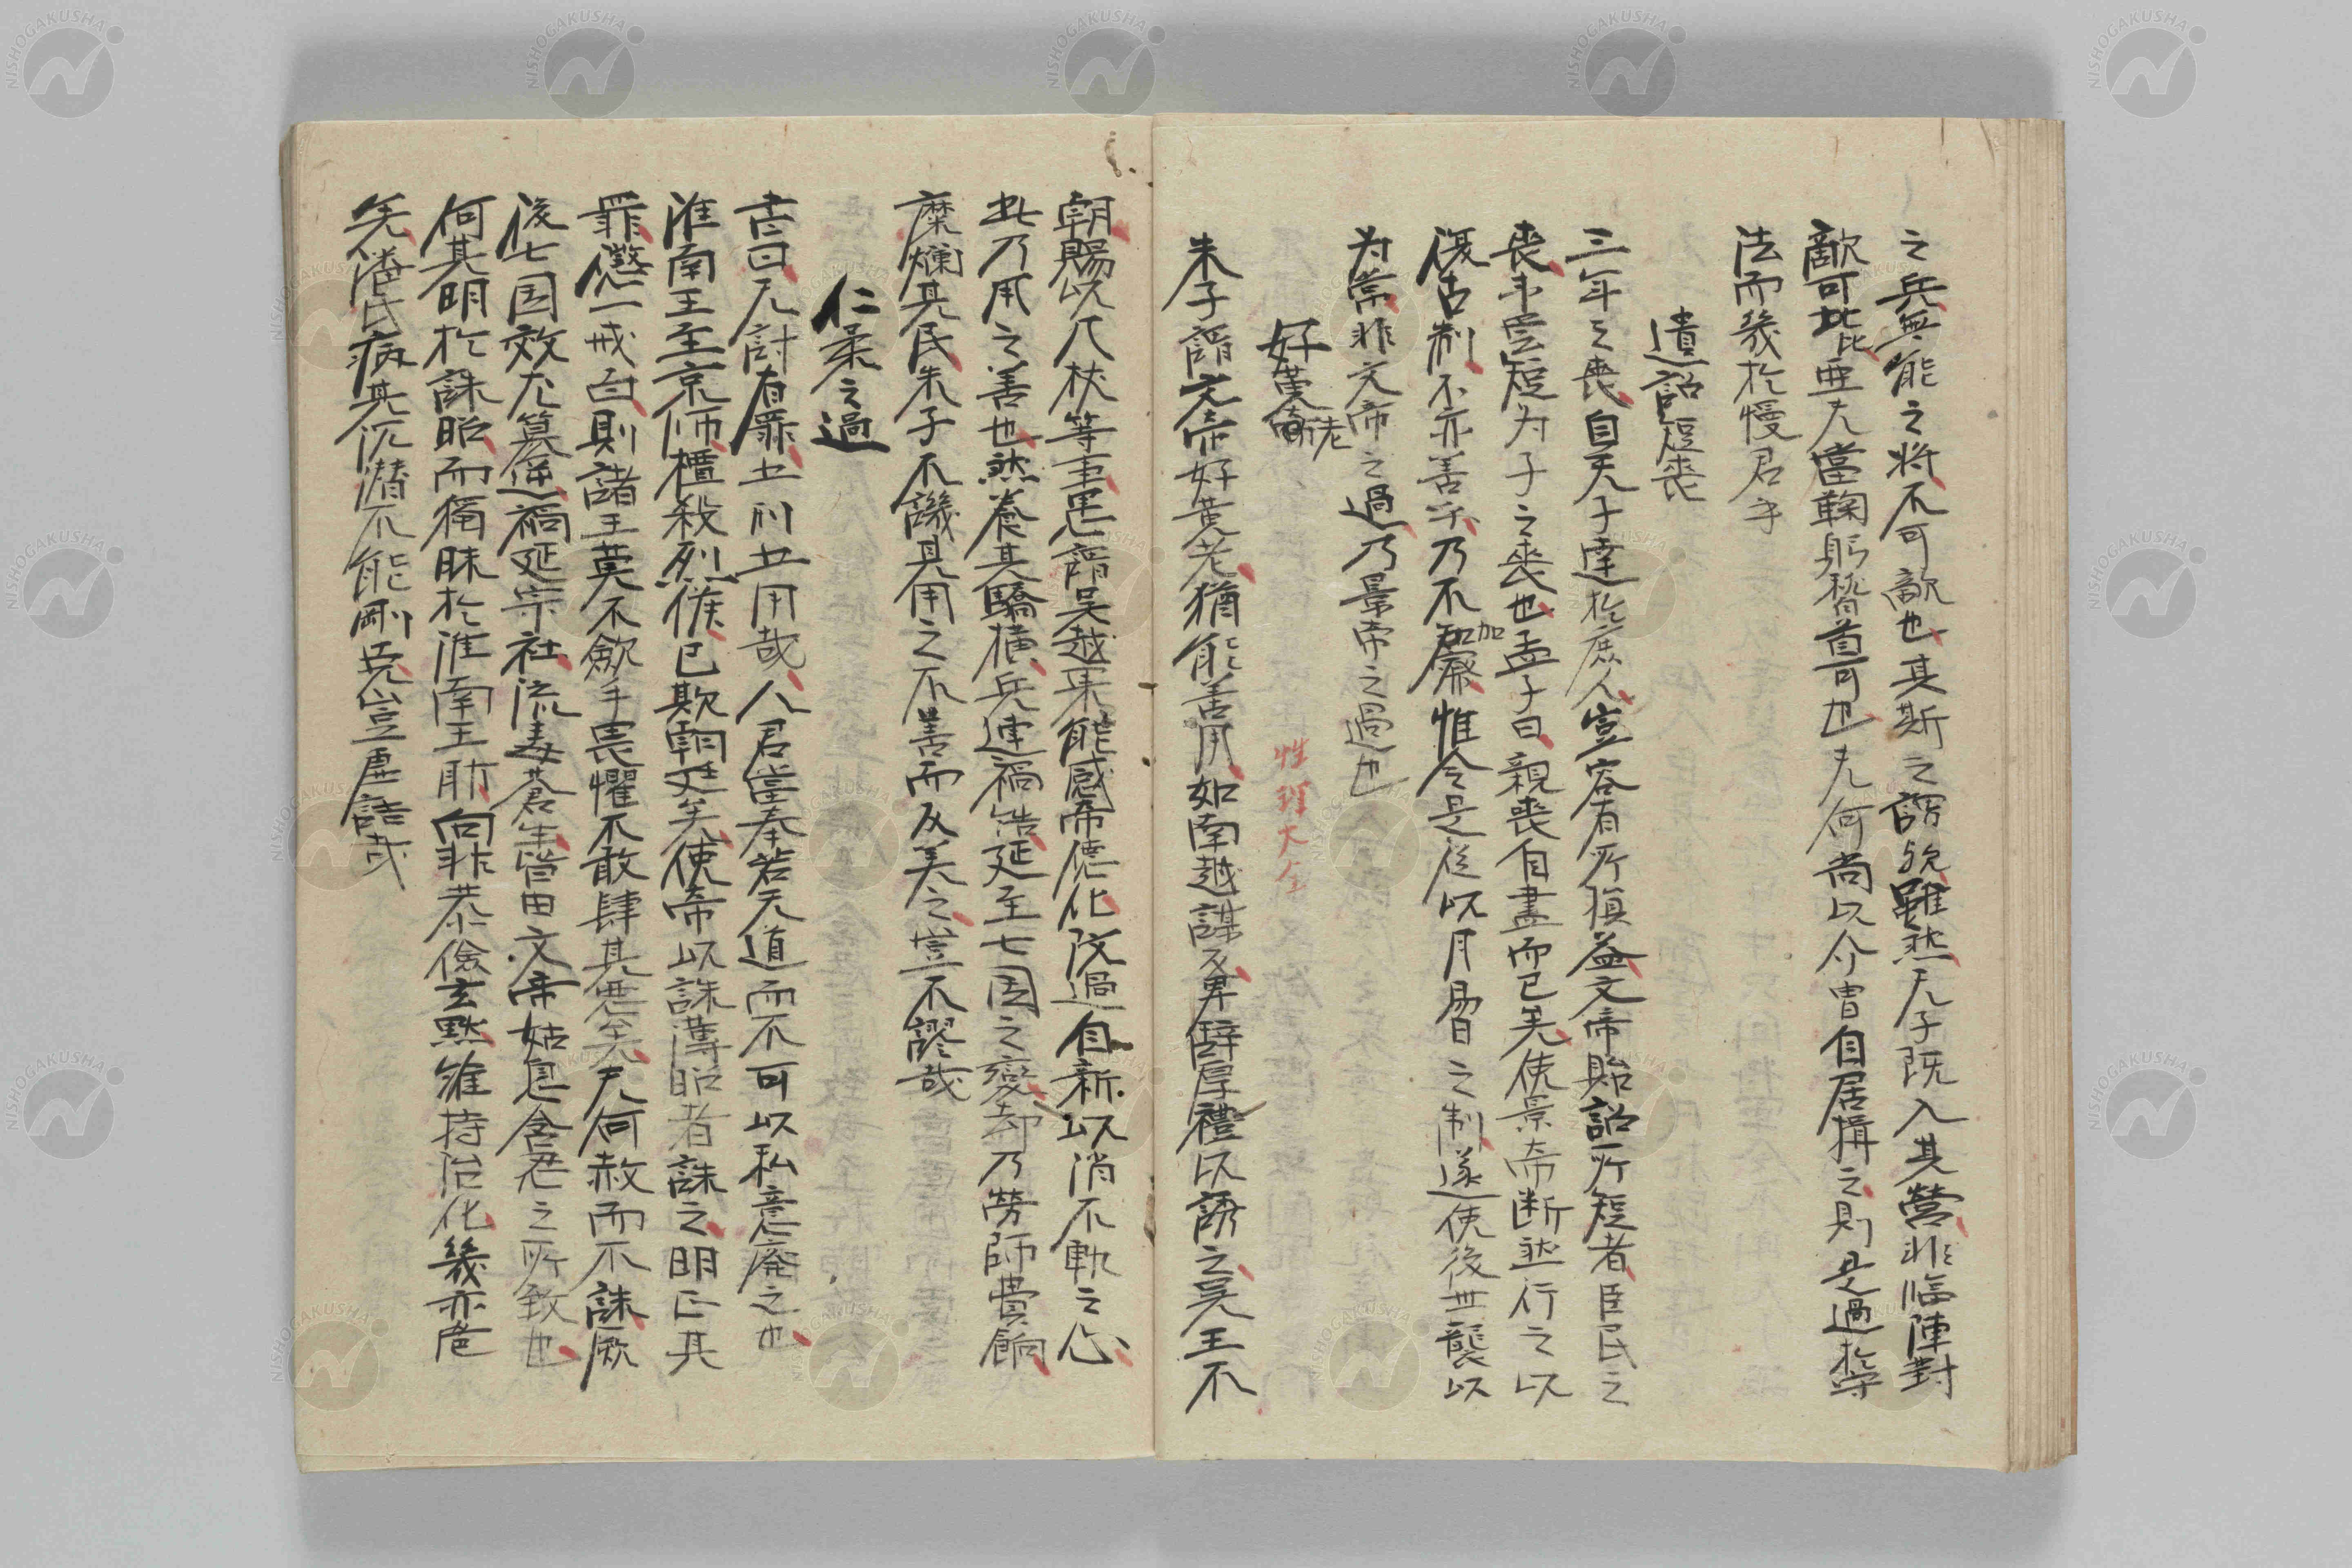 之兵無能之將不可敵也其斯之謂欤雖然天子既入其營非臨陣對
敵可比亜夫當鞠躬稽首可也夫何尚以介冑自居揖之則是過於守
法而幾於慢君乎
遺詔短喪
三年之喪自天子達於庶人豈容有所損益文帝貽詔所短者臣民之
喪未嘗短为子之喪也孟子曰親喪自盡而已矣使景帝断然行之以
復古制不亦善乎乃不加察惟令是從以月易日之制遂使後世襲以
为常非文帝之過乃景帝之過也
好黄老
性理大全
朱子謂文帝好黄老猶能善用如南越謀反卑辭厚禮以誘之吴王不
朝賜以几杖等事愚謂吴越果能感帝德化改過自新以消不軌之心
此乃用之善也然養其驕横兵連禍結延至七国之變却乃劳師費餉
糜爛其民朱子不譏其用之不善而反美之豈不謬哉
仁柔之過
書曰天討有罪五刑五用哉人君當奉若天道而不可以私意廢之也
淮南王至京师櫃殺烈侯已欺朝廷矣使帝以誅薄昭者誅之明正其
罪懲一戒百則諸王莫不歛手畏懼不敢肆其悪矣夫何赦而不誅厥
後七国效尤篡逆禍延宗社流毒蒼生皆由文帝姑息含忍之所致也
何其明於誅昭而獨昧於淮南王耶向非恭儉玄黙維持治化幾亦危
矣潘氏病其沉潜不能剛克豈虚語哉